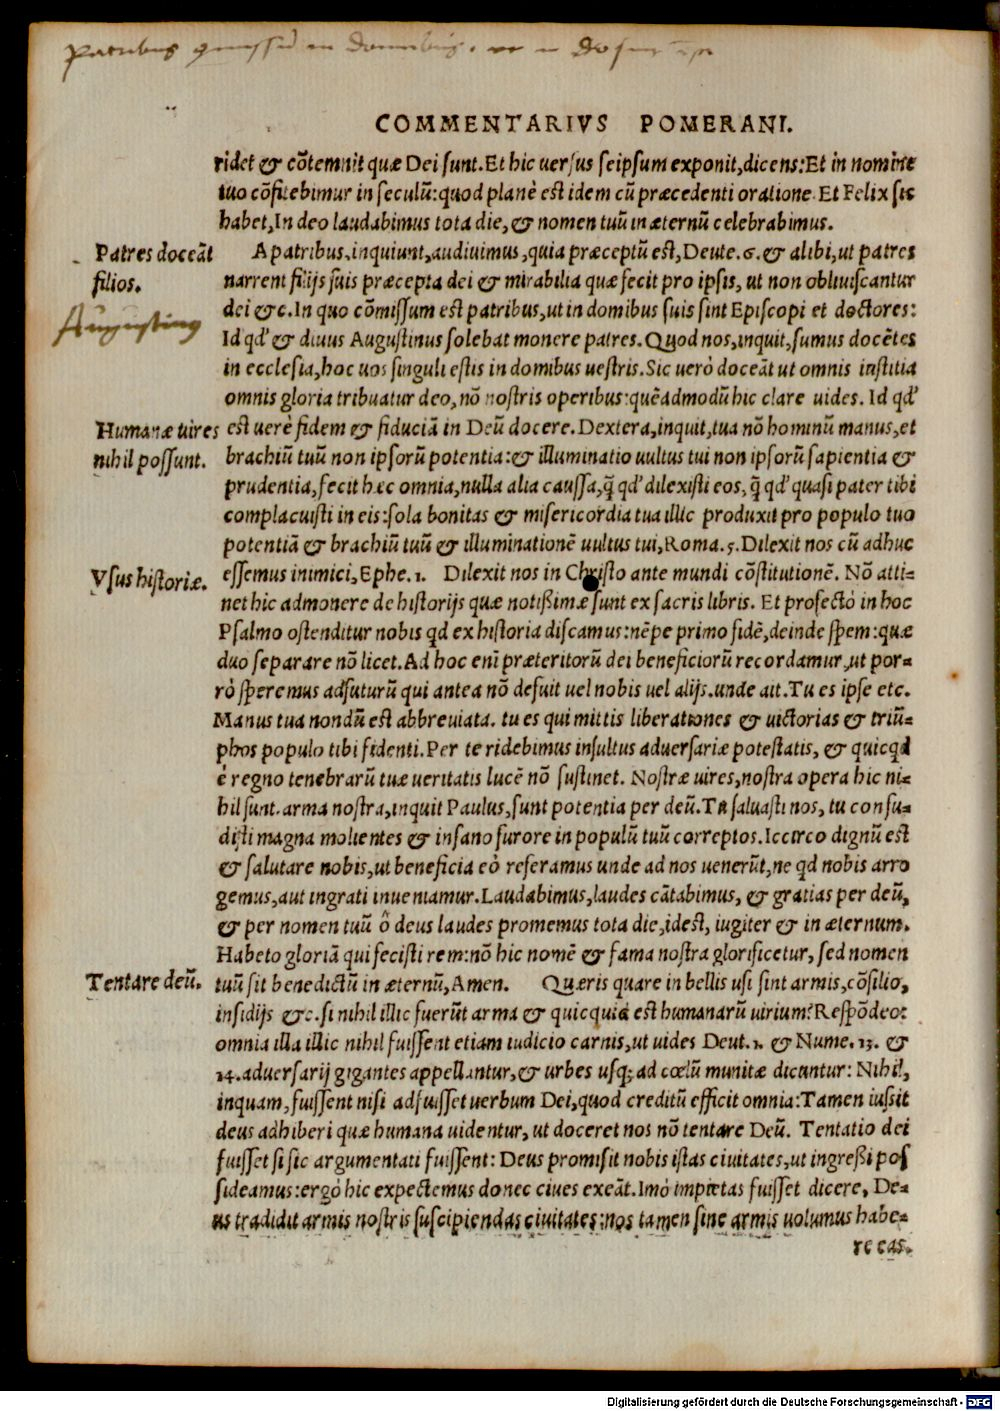 COMMENTARIVS POMERANI.
ridet & cõtemnit quæ Dei sunt. Et hic uersus seipsum exponit, dicens: Et in nomine
tuo cõfitebimur in seculũ: quod planè est idem cũ præcedenti oratione. Et Felix sic
habet, In deo laudabimus tota die, & nomen tuũ in æternũ celebrabimus.
Patres doceãt
filios.
Augustinus
A patribus, inquiunt, audiuimus, quia præceptũ est, Deute. 6. & alibi, ut patres
narrent filijs suis præcepta dei & mirabilia quæ fecit pro ipsis, ut non obliuiscantur
dei &c. In quo cõmissum est patribus, ut in domibus suis sint Episcopi et doctores:
Id qđ & diuus Augustinus solebat monere patres. Quod nos, inquit, sumus docẽtes
in ecclesia, hoc uos singuli estis in domibus uestris. Sic uerò doceãt ut omnis iustitia
omnis gloria tribuatur deo, nõ nostris operibus: quẽadmodũ hic clare uides. Id qđ
Humanæ uires
nihil possunt.
est uerè fidem & fiduciã in Deũ docere. Dextera, inquit, tua nõ hominũ manus, et
brachiũ tuũ non ipsorũ potentia: & illuminatio uultus tui non ipsorũ sapientia &
prudentia, fecit hæc omnia, nulla alia caussa, q̃ qđ dilexisti eos, q̃ qđ quasi pater tibi
complacuisti in eis: sola bonitas & misericordia tua illic produxit pro populo tuo
potentiã & brachiũ tuũ & illuminationẽ uultus tui, Roma. 5. Dilexit nos cũ adhuc
Vsus historiæ.
essemus inimici, Ephe. 1. Dilexit nos in Christo ante mundi cõstitutionẽ. Nõ atti-
net hic admonere de historijs quæ notißimæ sunt ex sacris libris. Et profectò in hoc
Psalmo ostenditur nobis qd ex historia discamus: nẽpe primo fidẽ, deinde spem: quæ
duo separare nõ licet. Ad hoc eni præteritorũ dei beneficiorũ recordamur, ut por-
rò speremus adfuturũ qui antea nõ defuit uel nobis uel alijs. unde ait. Tu es ipse etc.
Manus tua nondũ est abbreuiata. tu es qui mittis liberationes & uictorias & triũ-
phos populo tibi fidenti. Per te ridebimus insultus aduersariæ potestatis, & quicqd
è regno tenebrarũ tuæ ueritatis lucẽ nõ sustinet. Nostræ uires, nostra opera hic ni-
hil sunt. arma nostra, inquit Paulus, sunt potentia per deũ. Tu saluasti nos, tu confu-
disti magna molientes & insano furore in populũ tuũ correptos. Iccirco dignũ est
& salutare nobis, ut beneficia eò referamus unde ad nos uenerũt, ne qd nobis arro
gemus, aut ingrati inueniamur. Laudabimus, laudes cãtabimus, & gratias per deũ,
& per nomen tuũ ô deus laudes promemus tota die, idest, iugiter & in æternum.
Habeto gloriã qui fecisti rem: nõ hic nomẽ & fama nostra glorificetur, sed nomen
Tentare deũ.
tuũ sit benedictũ in æternũ, Amen. Quæris quare in bellis usi sint armis, cõsilio,
insidijs &c. si nihil illic fuerũt arma & quicquid est humanarũ uirium? Respõdeo:
omnia illa illic nihil fuissent etiam iudicio carnis, ut uides Deut. 1. & Nume. 13. &
14. aduersarij gigantes appellantur, & urbes usq; ad cœlũ munitæ dicuntur: Nihil,
inquam, fuissent nisi adfuisset uerbum Dei, quod creditũ efficit omnia: Tamen iussit
deus adhiberi quæ humana uidentur, ut doceret nos nõ tentare Deũ. Tentatio dei
fuisset si sic argumentati fuissent: Deus promisit nobis istas ciuitates, ut ingreßi pos
sideamus: ergò hic expectemus donec ciues exeãt. Imò impietas fuisset dicere, De-
us tradidit armis nostris suscipiendas ciuitates: nos tamen sine armis uolumus habe-
re eas.
Digitalisierung gefördert durch die Deutsche Forschungsgemeinschaft - DFG